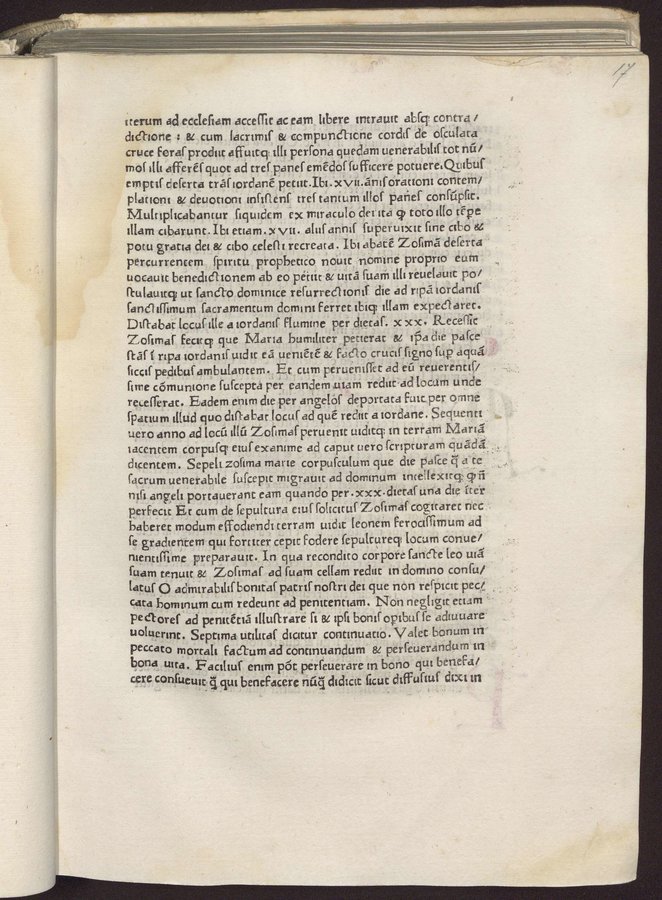 17
iterum ad ecclesiam accessit ac eam libere intrauit absq; contra/
dictione : & cum lacrimis & compunctione cordis de osculata
cruce foras prodiit affuitq; illi persona quedam uenerabilis tot nũ/
mos illi afferẽs quot ad tres panes emẽdos sufficere potuere. Quibus
emptis deserta trãs iordanẽ petiit. Ibi .xvii. ãnis orationi contem/
plationi & deuotioni insistens tres tantum illos panes consũpsit.
Multiplicabantur siquidem ex miraculo dei ita ꝙ toto illo tẽpe
illam cibarunt. Ibi etiam .xvii. aliis annis superuixit sine cibo &
potu gratia dei & cibo celesti recreata. Ibi abatẽ Zosimã deserta
percurrentem spiritu prophetico nouit nomine proprio eum
uocauit benedictionem ab eo petiit & uitã suam illi reuelauit po/
stulauitq; ut sancto dominice resurrectionis die ad ripã iordanis
sanctissimum sacramentum domini ferret ibiq; illam expectaret.
Distabat locus ille a iordanis flumine per dietas .xxx. Recessit
Zosimas fecitq; que Maria humiliter petierat & ip̃a die pasce
stãs ĩ ripa iordanis uidit eã ueniẽtẽ & facto crucis signo sup aquã
siccis pedibus ambulantem. Et cum peruenisset ad eũ reuerentis/
sime cõmunione suscepta per eandem uiam rediit ad locum unde
recesserat. Eadem enim die per angelos deportata fuit per omne
spatium illud quo distabat locus ad quẽ rediit a iordane. Sequenti
uero anno ad locũ illũ Zosimas peruenit uiditq; in terram Mariã
iacentem corpusq; eius exanime ad caput uero scripturam quãdã
dicentem. Sepeli zosima marie corpusculum que die pasce q̃ a te
sacrum uenerabile suscepit migrauit ad dominum intellexitq; ꝙ ñ
nisi angeli portauerant eam quando per .xxx. dietas una die iter
perfecit Et cum de sepultura eius solicitus Zosimas cogitaret nec
haberet modum effodiendi terram uidit leonem ferocissimum ad
se gradientem qui fortiter cepit fodere sepultureq; locum conue/
nientissime preparauit. In qua recondito corpore sancte leo uiã
suam tenuit & Zosimas ad suam cellam rediit in domino consu/
latus O admirabilis bonitas patris nostri dei que non respicit pec/
cata hominum cum redeunt ad penitentiam. Non negligit etiam
pectores ad penitẽtiã illustrare si & ipsi bonis opibus se adiuuare
uoluerint. Septima utilitas dicitur continuatio. Valet bonum in
peccato mortali factum ad continuandum & perseuerandum in
bona uita. Facilius enim põt perseuerare in bono qui benefa/
cere consueuit q̃ qui benefacere nũq̃ didicit sicut diffusius dixi in